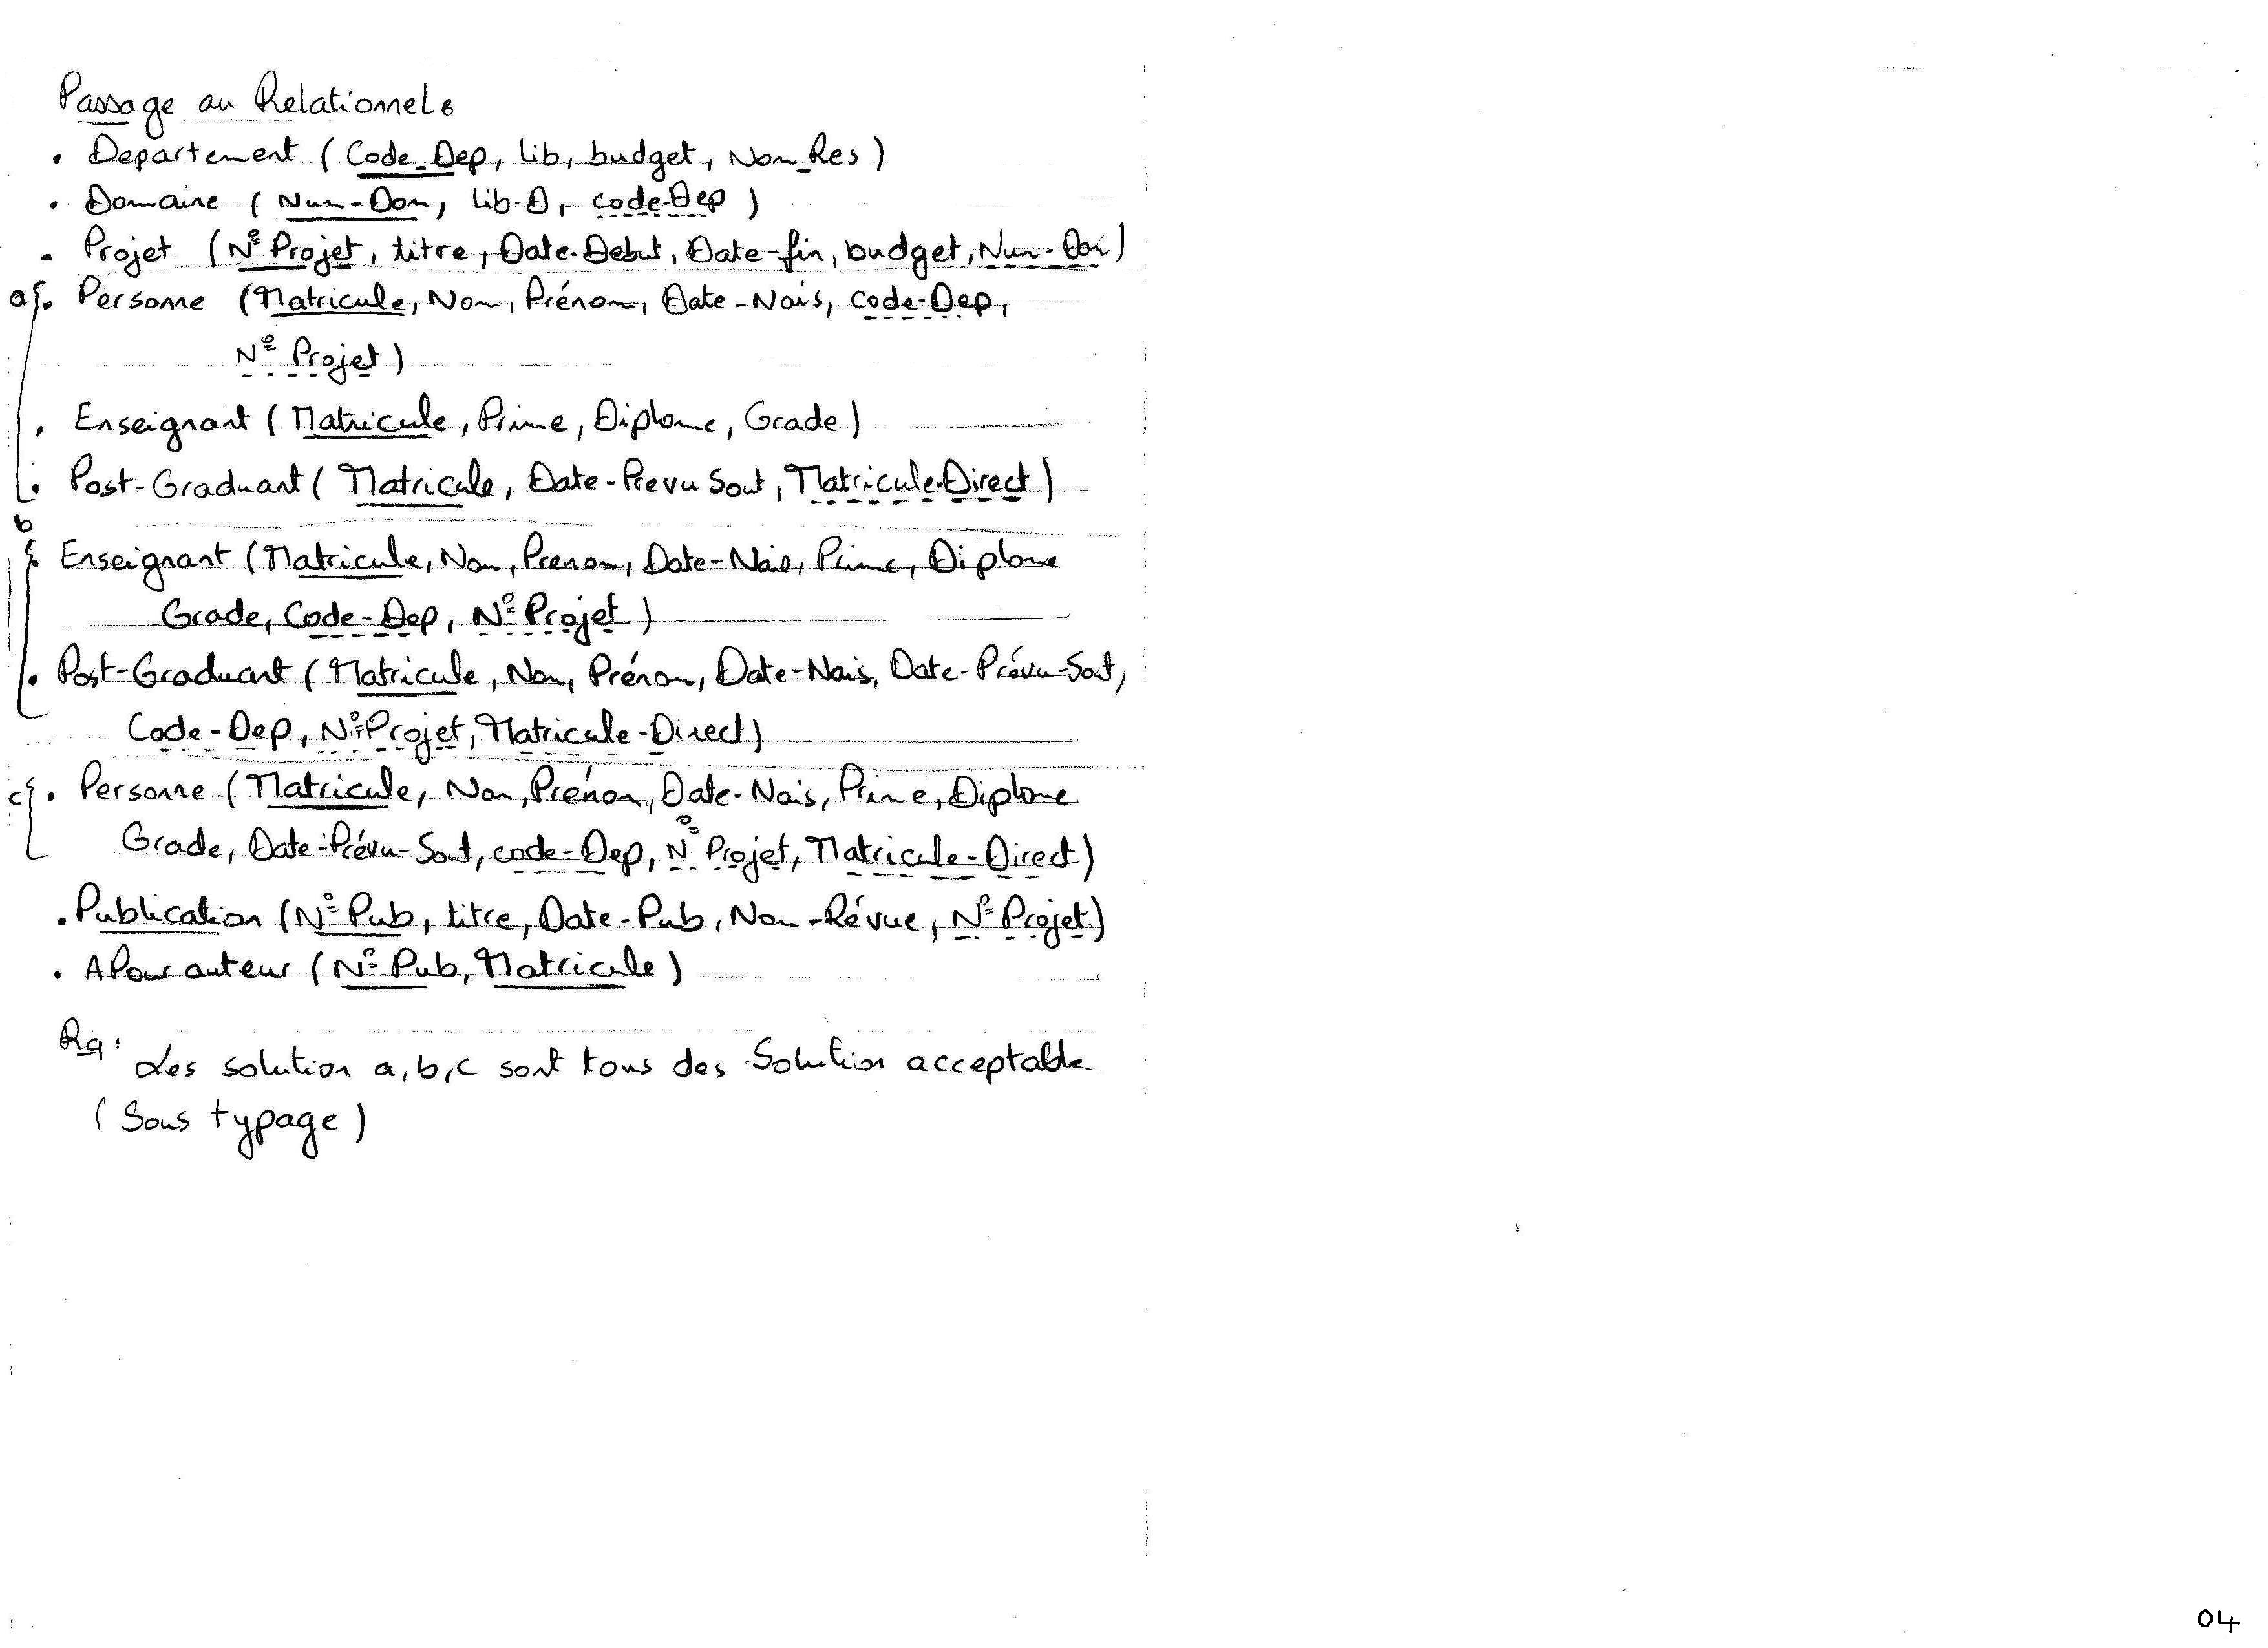 Passage au Relationnel :
• Departement ( Code_Dep, Lib, budget, Nom_Res )
• Domaine ( Num-Dom, Lib-D, code-Dep )
• Projet ( N° Projet, titre, Date-Debut, Date-fin, budget, Num-Dom )
a • Personne ( Matricule, Nom, Prénom, Date-Nais, code-Dep,
N° Projet )
• Enseignant ( Matricule, Prime, Diplome, Grade )
• Post-Graduant ( Matricule, Date-Prevu Sout, Matricule-Direct )
b
• Enseignant ( Matricule, Nom, Prenom, Date-Nais, Prime, Diplome
Grade, Code-Dep, N° Projet )
• Post-Graduant ( Matricule, Nom, Prénom, Date-Nais, Date-Prévu-Sout,
Code-Dep, N° Projet, Matricule-Direct )
c • Personne ( Matricule, Nom, Prénom, Date-Nais, Prime, Diplome
Grade, Date-Prévu-Sout, code-Dep, N° Projet, Matricule-Direct )
• Publication ( N° Pub, titre, Date-Pub, Nom-Révue, N° Projet )
• APour auteur ( N° Pub, Matricule )
Rq : Les solution a, b, c sont tous des Solution acceptable
( Sous typage )
04